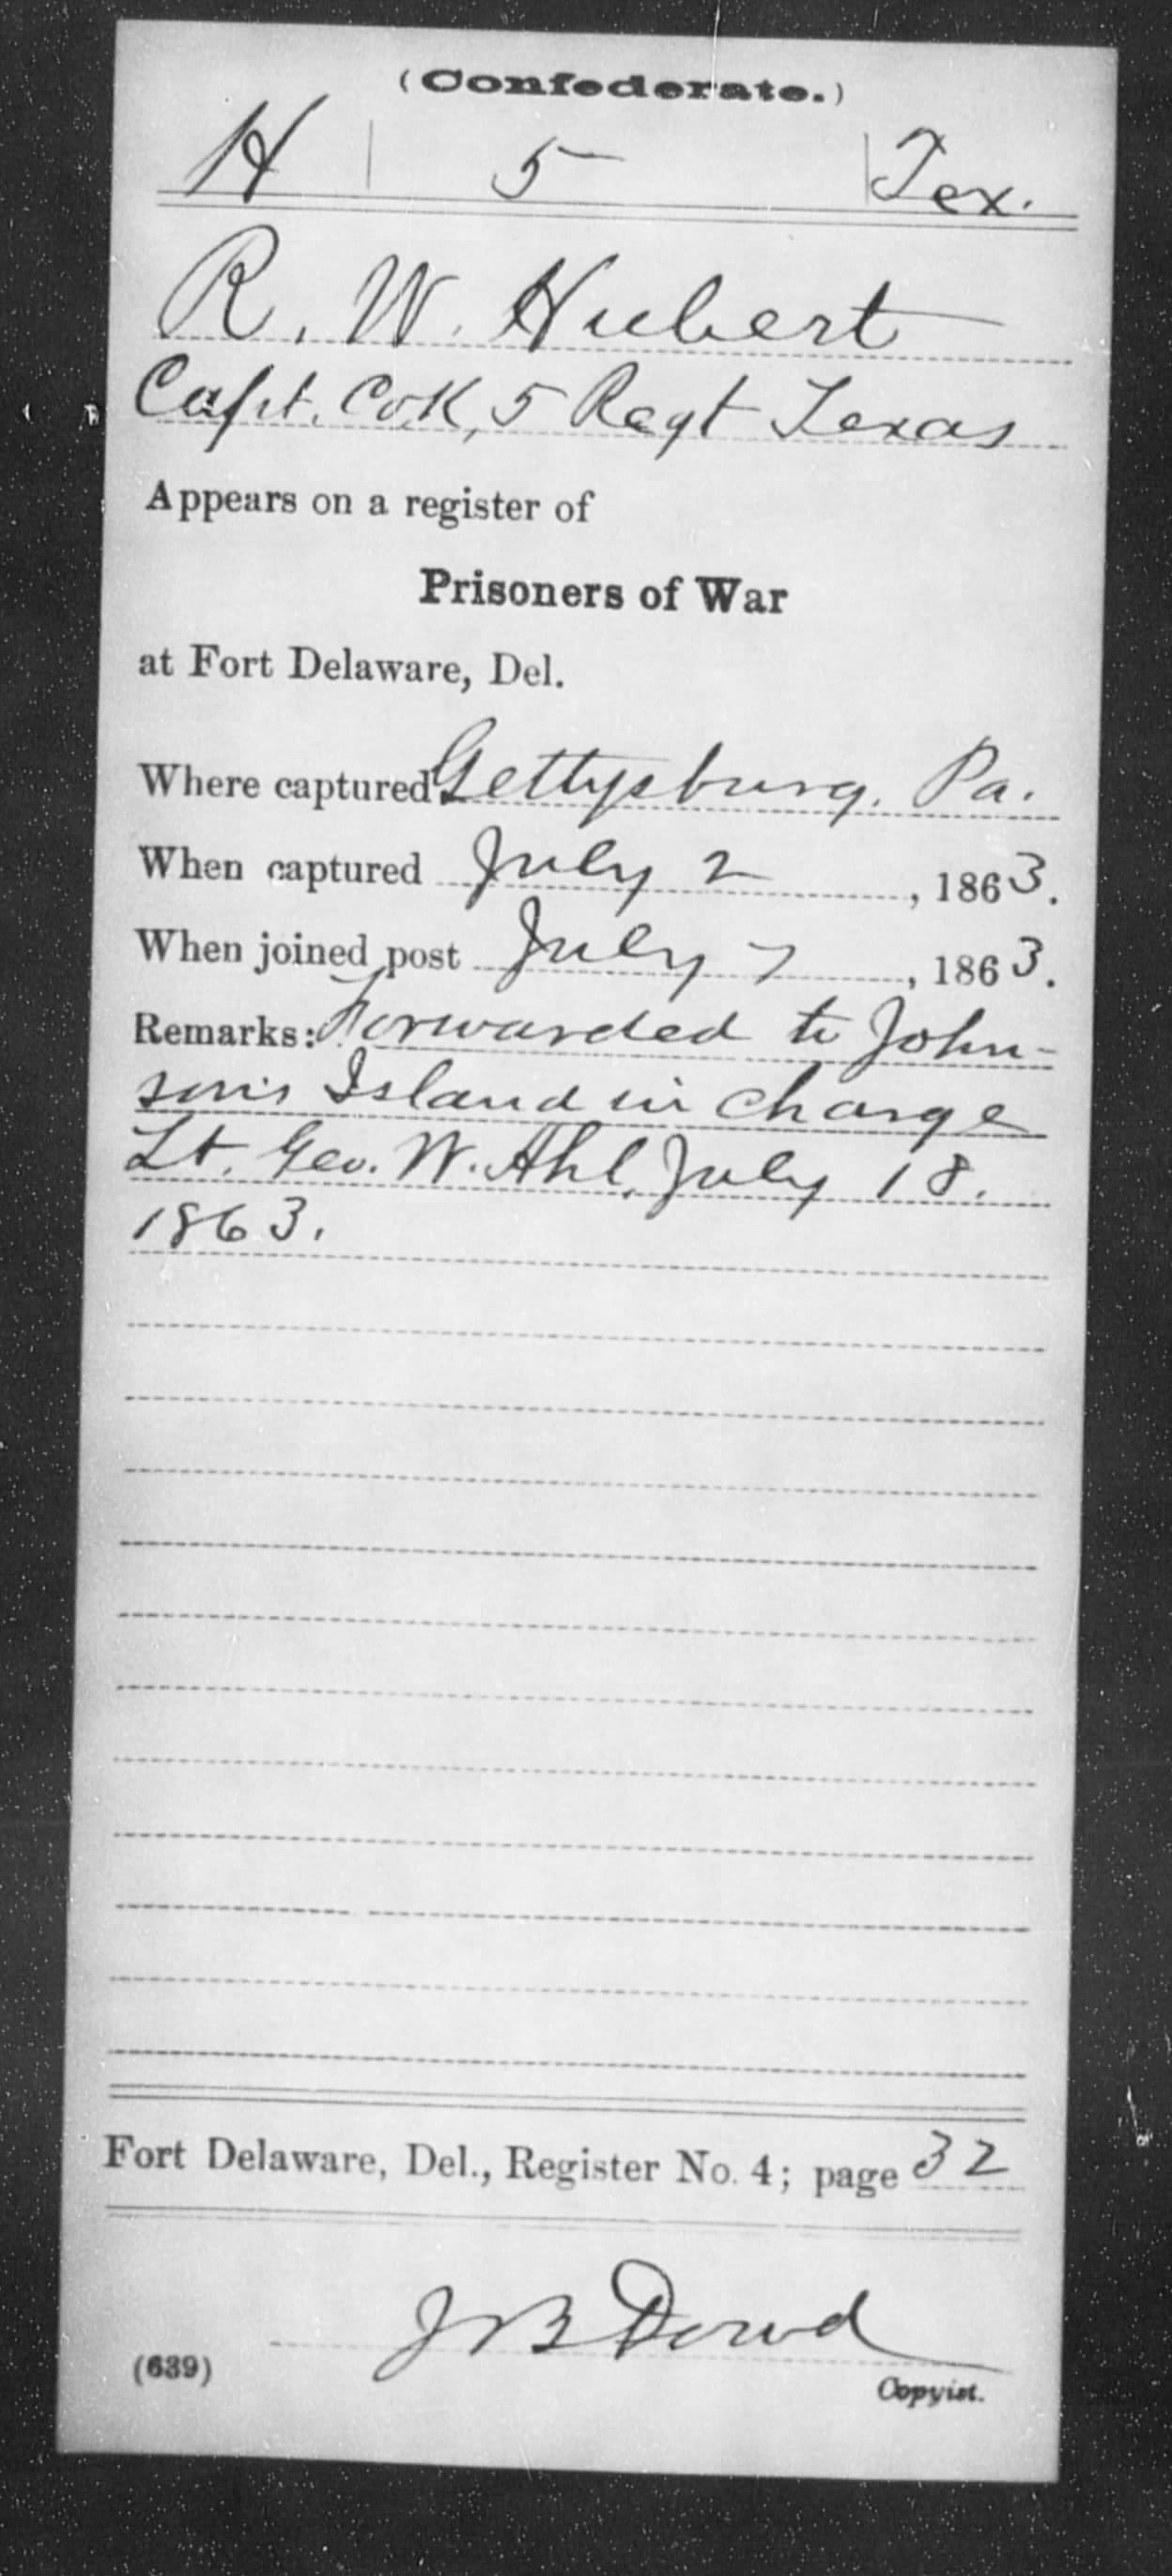 (Confederate.)
H | 5 | Tex.
R. W. Hubert
Capt. Co K, 5 Regt Texas
Appears on a register of
Prisoners of War
at Fort Delaware, Del.
Where captured Gettysburg, Pa.
When captured July 2, 1863.
When joined post July 7, 1863.
Remarks: Forwarded to John-
son's Island in charge
Lt. Geo. W. Ahl, July 18.
1863.
Fort Delaware, Del., Register No. 4; page 32
J B Dowd
(639)
Copyist.